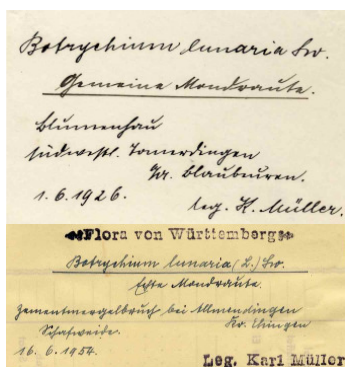 Botrychium lunaria Sw.
Gemeine Mondraute.
Blumenhau
südwestl. Tomerdingen
Kr. Blaubeuren.
1.6.1926.
leg. K. Müller.
Flora von Württemberg
Botrychium lunaria (L.) Sw.
Echte Mondraute.
Zementmergelbruch bei Allmendingen
Schafweide. Kr. Ehingen
16.6.1954.
Leg. Karl Müller